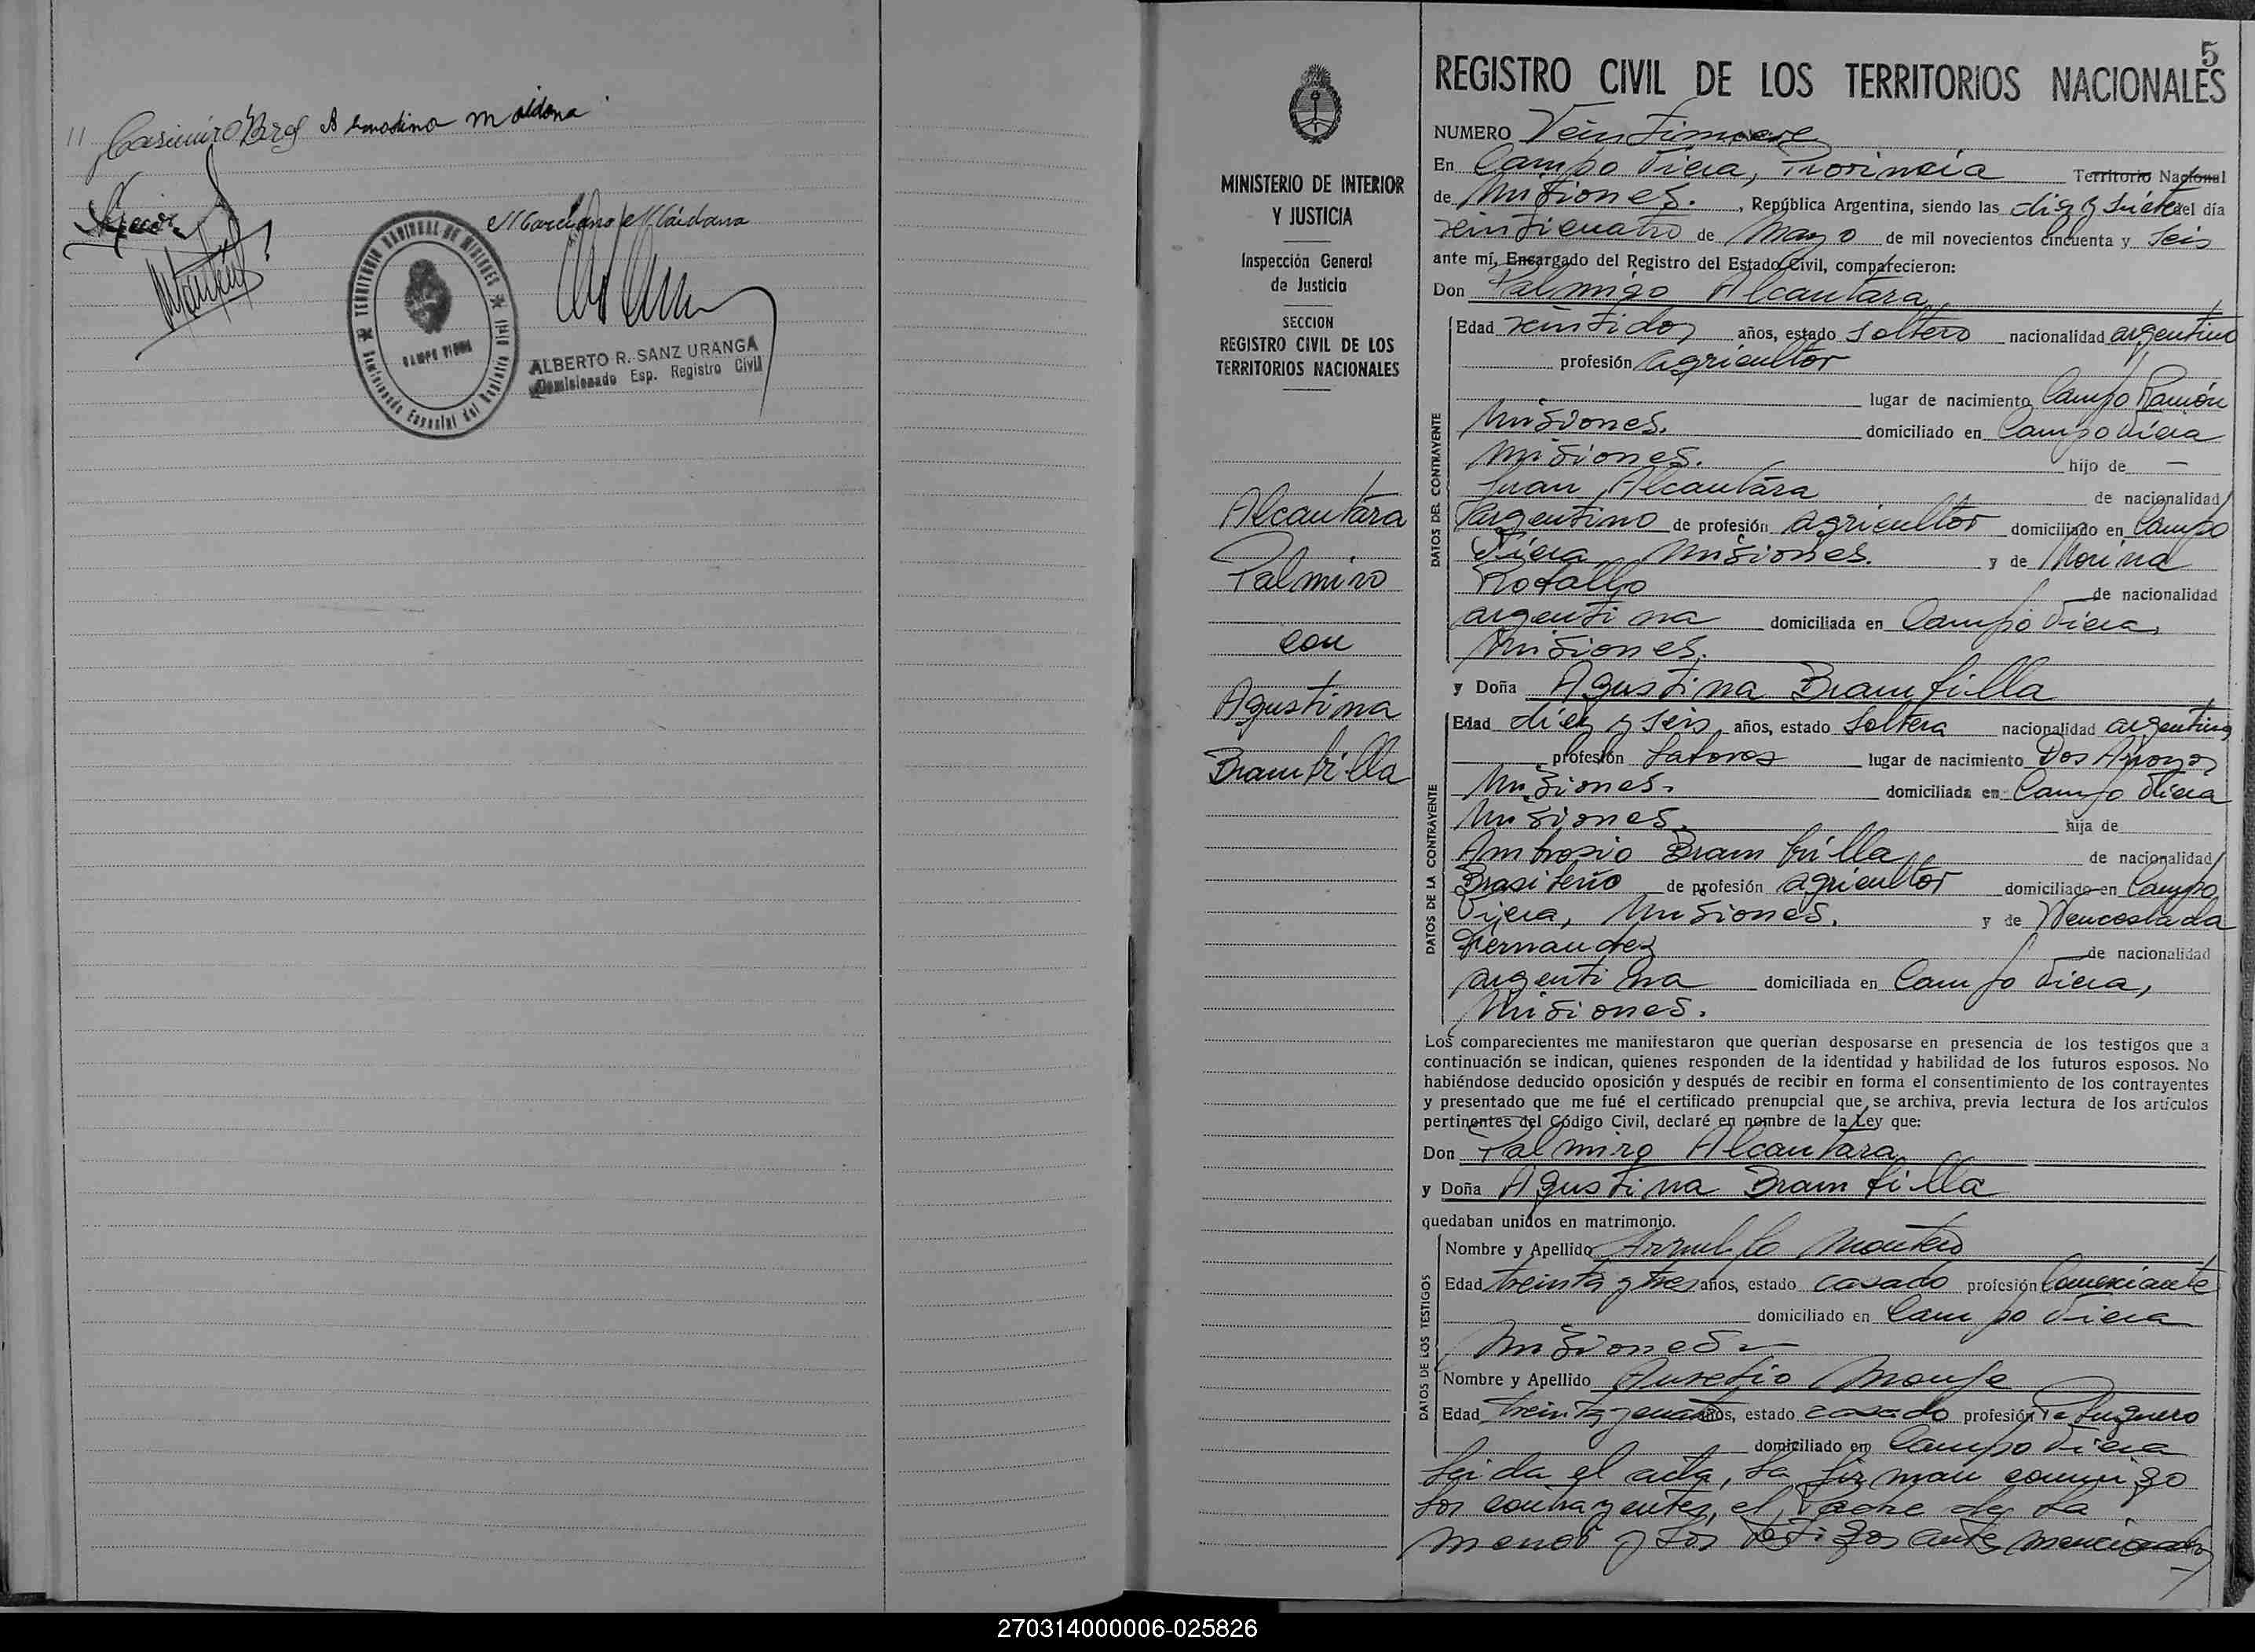 Casimiro Berg Bernardino Maidana
Marciano Maidana
TERRITORIO NACIONAL DE MISIONES
CAMPO VIERA
Comisionado Especial del Registro Civil
ALBERTO R. SANZ URANGA
Comisionado Esp. Registro Civil
MINISTERIO DE INTERIOR
Y JUSTICIA
Inspección General
de Justicia
SECCION
REGISTRO CIVIL DE LOS
TERRITORIOS NACIONALES
Alcantara
Palmiro
con
Agustina
Brambilla
5
REGISTRO CIVIL DE LOS TERRITORIOS NACIONALES
NUMERO Veintinueve
En Campo Viera, Provincia Territorio Nacional
de Misiones. , República Argentina, siendo las diez y siete del día
veinticuatro de Mayo de mil novecientos cincuenta y seis
ante mí, Encargado del Registro del Estado Civil, comparecieron:
Don Palmiro Alcantara,
DATOS DEL CONTRAYENTE
Edad veintidos años, estado soltero nacionalidad argentino
profesión agricultor
lugar de nacimiento Campo Ramón
Misiones. domiciliado en Campo Viera
Misiones. hijo de —
Juan Alcantara de nacionalidad
argentino de profesión agricultor domiciliado en Campo
Viera, Misiones. y de
de nacionalidad
argentina domiciliada en Campo Viera,
Misiones.
y Doña Agustina Brambilla
DATOS DE LA CONTRAYENTE
Edad diez y seis años, estado soltera nacionalidad argentina
profesión labores lugar de nacimiento Dos Arroyos
Misiones. domiciliada en Campo Viera
Misiones. hija de
Ambrosio Brambilla de nacionalidad
Brasileño de profesión agricultor domiciliado en Campo
Viera, Misiones. y de Wenceslada
Fernandez de nacionalidad
argentina domiciliada en Campo Viera,
Misiones.
Los comparecientes me manifestaron que querían desposarse en presencia de los testigos que a
continuación se indican, quienes responden de la identidad y habilidad de los futuros esposos. No
habiéndose deducido oposición y después de recibir en forma el consentimiento de los contrayentes
y presentado que me fué el certificado prenupcial que se archiva, previa lectura de los artículos
pertinentes del Código Civil, declaré en nombre de la Ley que:
Don Palmiro Alcantara
y Doña Agustina Brambilla
quedaban unidos en matrimonio.
DATOS DE LOS TESTIGOS
Nombre y Apellido Arnulfo Montero
Edad treinta y tres años, estado casado profesión Comerciante
domiciliado en Campo Viera
Misiones
Nombre y Apellido Aurelio
Edad años, estado casado profesión Peluquero
domiciliado en Campo Viera
Leida el acta, la firman conmigo
los contrayentes, el Padre de la
menor y los testigos antes mencionados
270314000006-025826